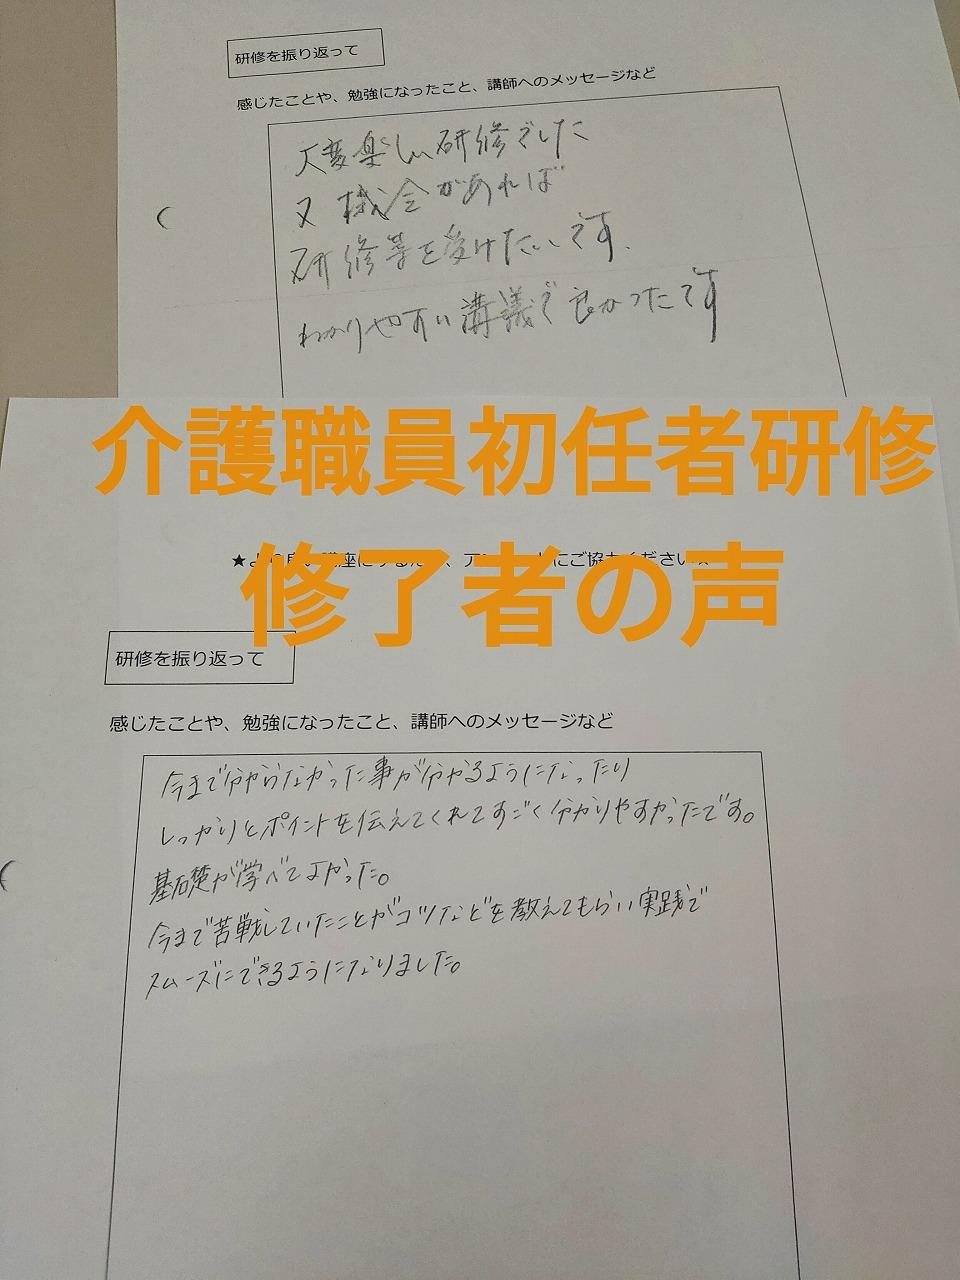 研修を振り返って
感じたことや、勉強になったこと、講師へのメッセージなど
大変楽しい研修でした
又機会があれば
研修等を受けたいです.
わかりやすい講義で良かったです
介護職員初任者研修
★ 講座にするため、 にご協力ください★
修了者の声
研修を振り返って
感じたことや、勉強になったこと、講師へのメッセージなど
今まで分からなかった事が分かるようになったり
しっかりとポイントを伝えてくれてすごく分かりやすかったです。
基礎が学べてよかった。
今まで苦戦していたことがコツなどを教えてもらい実践で
スムーズにできるようになりました。